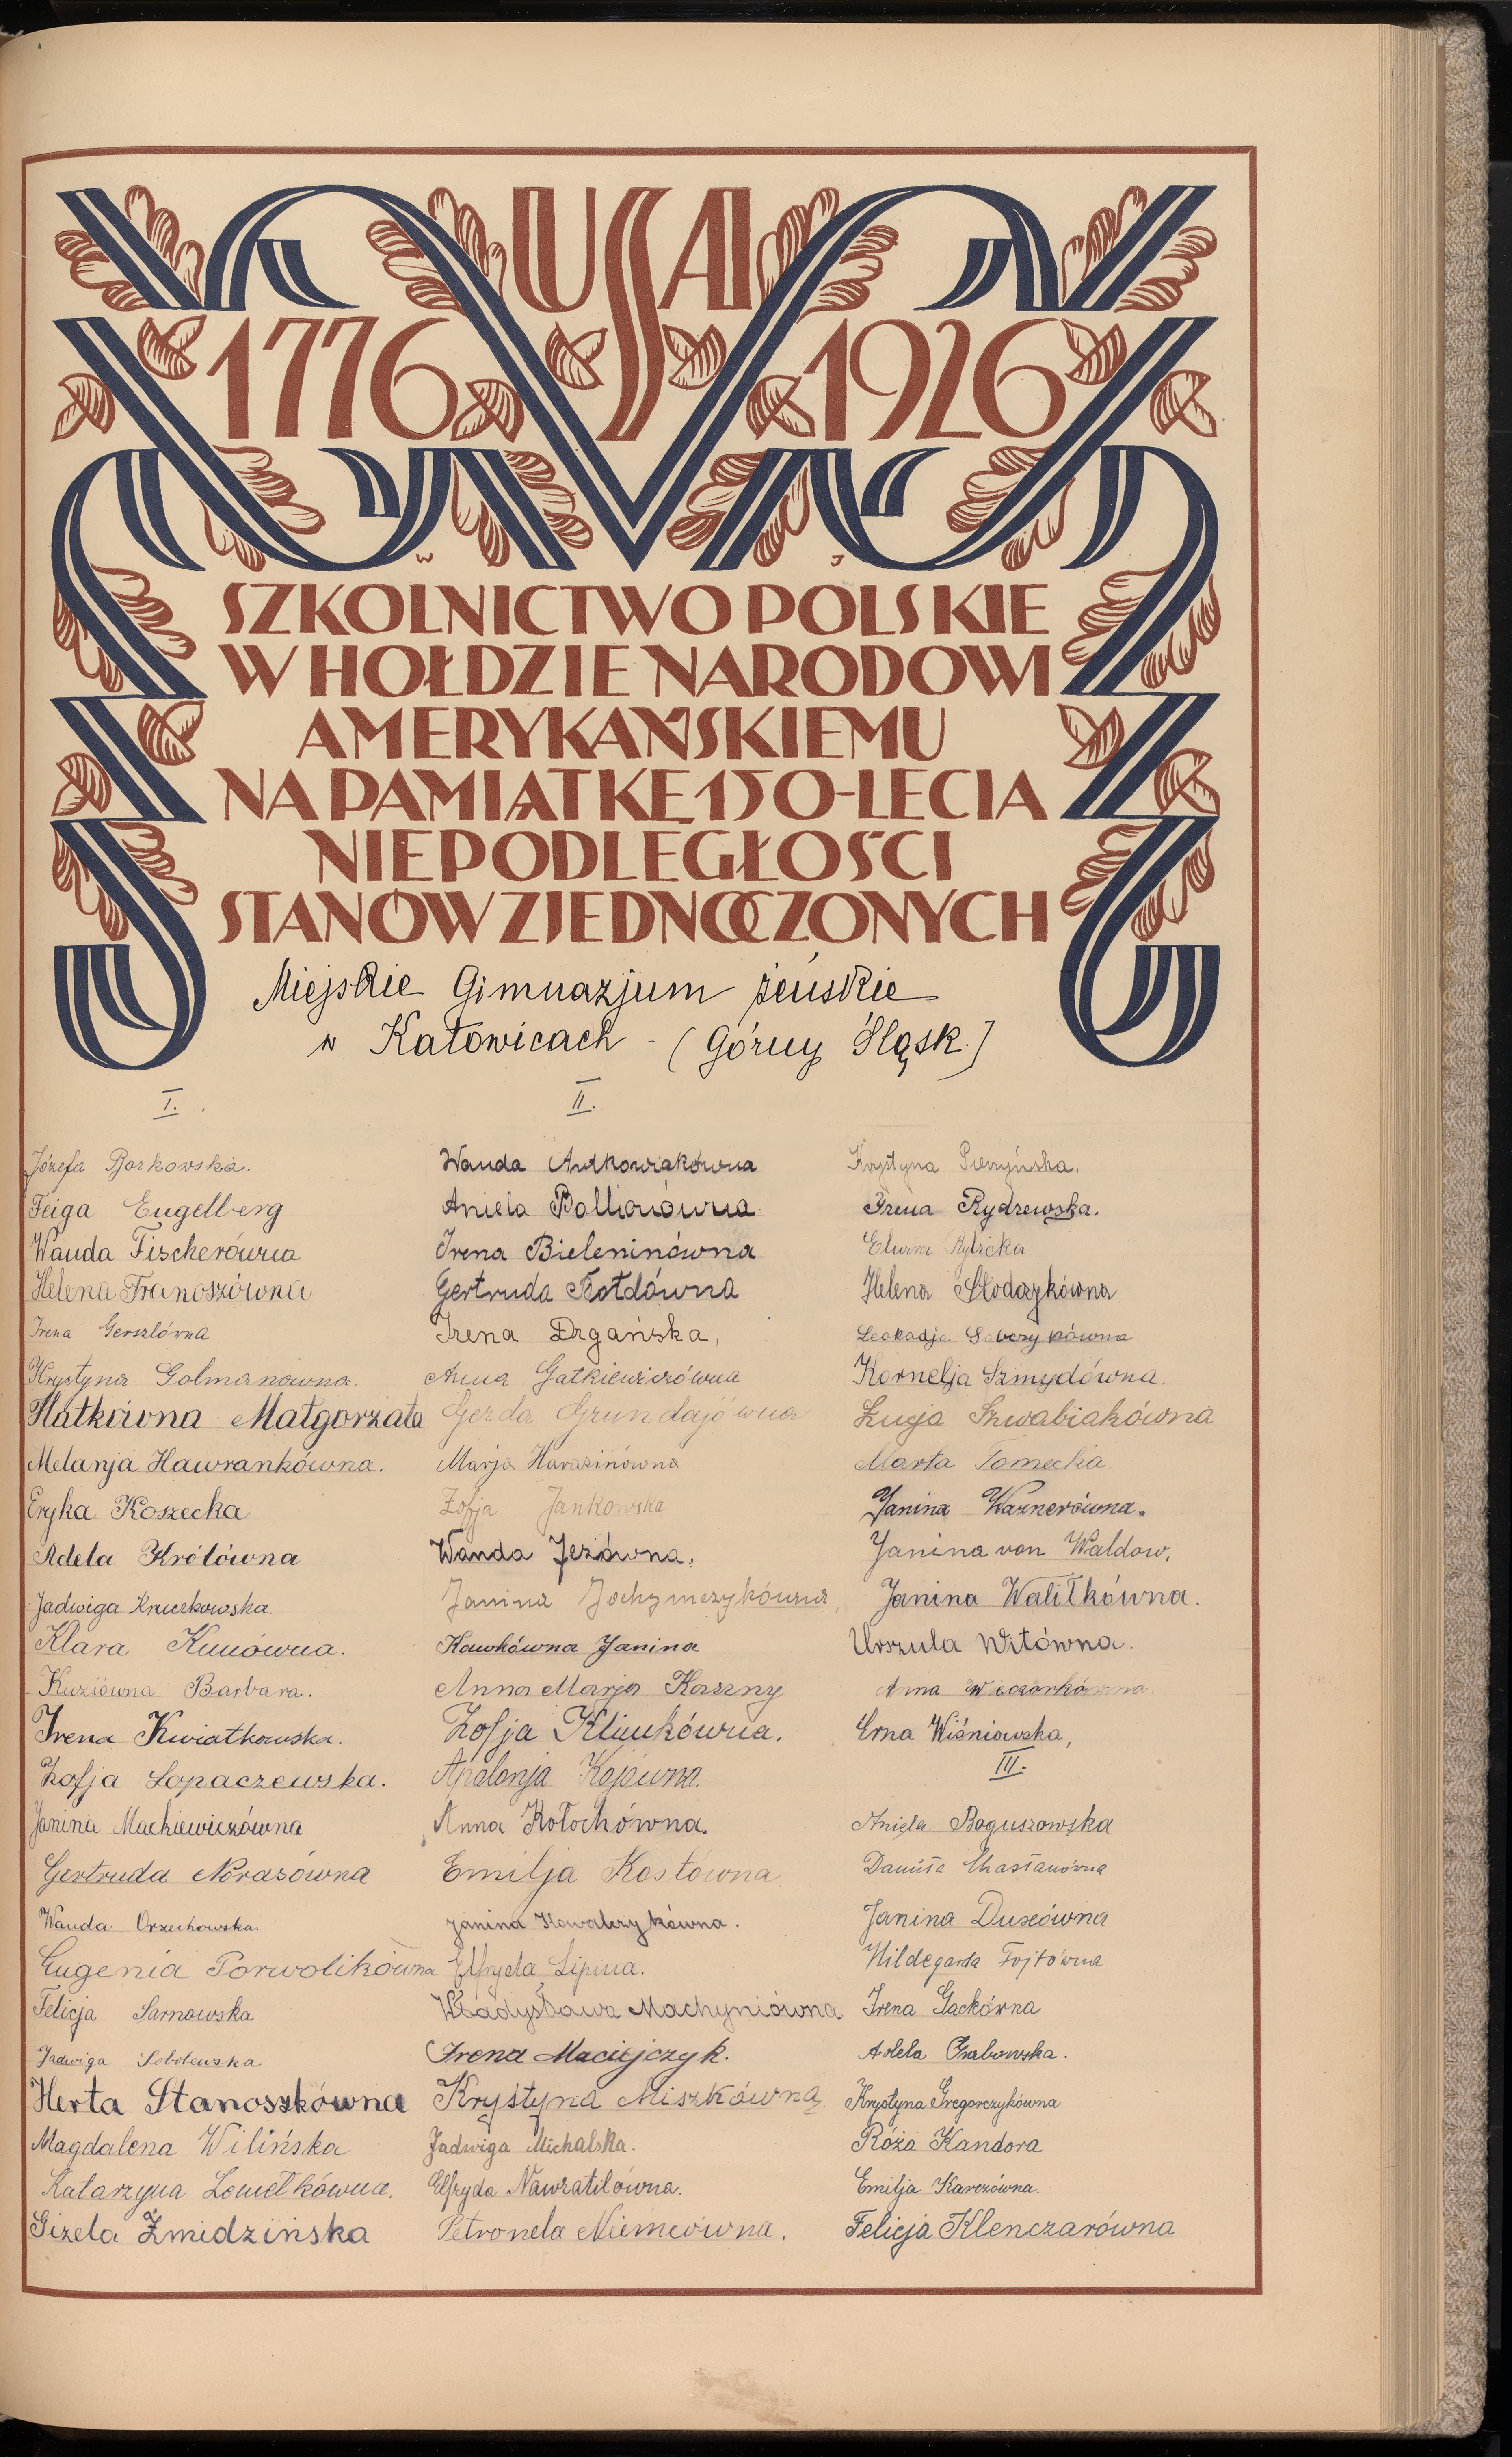 USA
1776 1926
W J
SZKOLNICTWO POLSKIE
W HOŁDZIE NARODOWI
AMERYKAŃSKIEMU
NA PAMIĄTKĘ 150-LECIA
NIEPODLEGŁOŚCI
STANÓW ZJEDNOCZONYCH
Miejskie Gimnazjum żeńskie
w Katowicach - (Górny Śląsk.)
I.
Józefa Borkowska.
Feiga Engelberg
Wanda Fischerówna
Helena Franoszówna
Irena Gerszlówna
Krystyna Golmanówna.
Hatkówna Małgorzata
Melanja Hawrankówna.
Eryka Koszecka
Adela Królówna
Jadwiga Kruczkowska.
Klara Kunówna.
Kuziówna Barbara.
Irena Kwiatkowska.
Zofja Łopaczewska.
Janina Mackiewiczówna
Gertruda Norasówna
Wanda Orzechowska
Eugenia Porwolikówna
Felicja Sarnowska
Jadwiga Sobolewska
Herta Stanoszkówna
Magdalena Wilińska
Katarzyna
Gizela Żmidzińska
II.
Wanda Antkowiakówna
Aniela Ballionówna
Irena Bieleninówna
Gertruda Botdówna
Irena Drgańska,
Anna Gatkiewiczówna
Gerda Grundajówna
Marja Harasinówna
Zofja Jankowska
Wanda Jeżówna,
Janina Jochymczykówna,
Kawkówna Janina
Anna Marja Kaszny
Zofja Klimkówna.
Apolonja Kojówna.
Anna Kołochówna.
Emilja Kostówna
Janina Kowalczykówna.
Elfryda Lipina.
Władysława Machyniówna
Irena Maciejczyk.
Krystyna Miszkówna
Jadwiga Michalska.
Elfryda Nawratilówna.
Petronela Niemcówna.
Krystyna
Irena Rydzewska.
Rybicka
Helena Słodczykówna
Leokadja
Kornelja Szmydówna.
Łucja Szwabiakówna
Marta Tomecka
Janina Waznerówna.
Janina von Waldow,
Janina Walitkówna.
Urszula Witówna.
Anna Wieczorkówna.
Erna Wiśniowska,
III.
Aniela Boguszowska
Danuta Chasłanówna
Janina Duxówna
Hildegarda Fojtówna
Irena Gackówna
Adela Grabowska.
Krystyna Gregorczykówna
Róża Kandora
Emilja Karczówna.
Felicja Klenczarówna